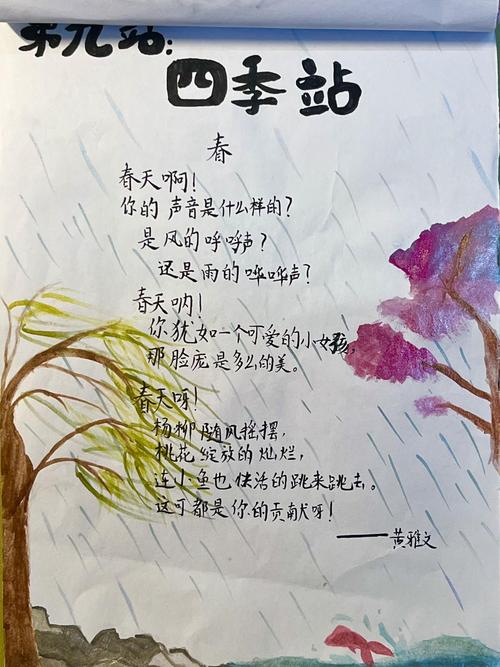 第九站:
四季站
春
春天啊!
你的声音是什么样的?
是风的呼呼声?
还是雨的哗哗声?
春天呐!
你犹如一个可爱的小女孩,
那脸庞是多么的美。
春天呀!
杨柳随风摇摆,
桃花绽放的灿烂,
连小鱼也快活的跳来跳去。
这可都是你的贡献呀!
——黄雅文